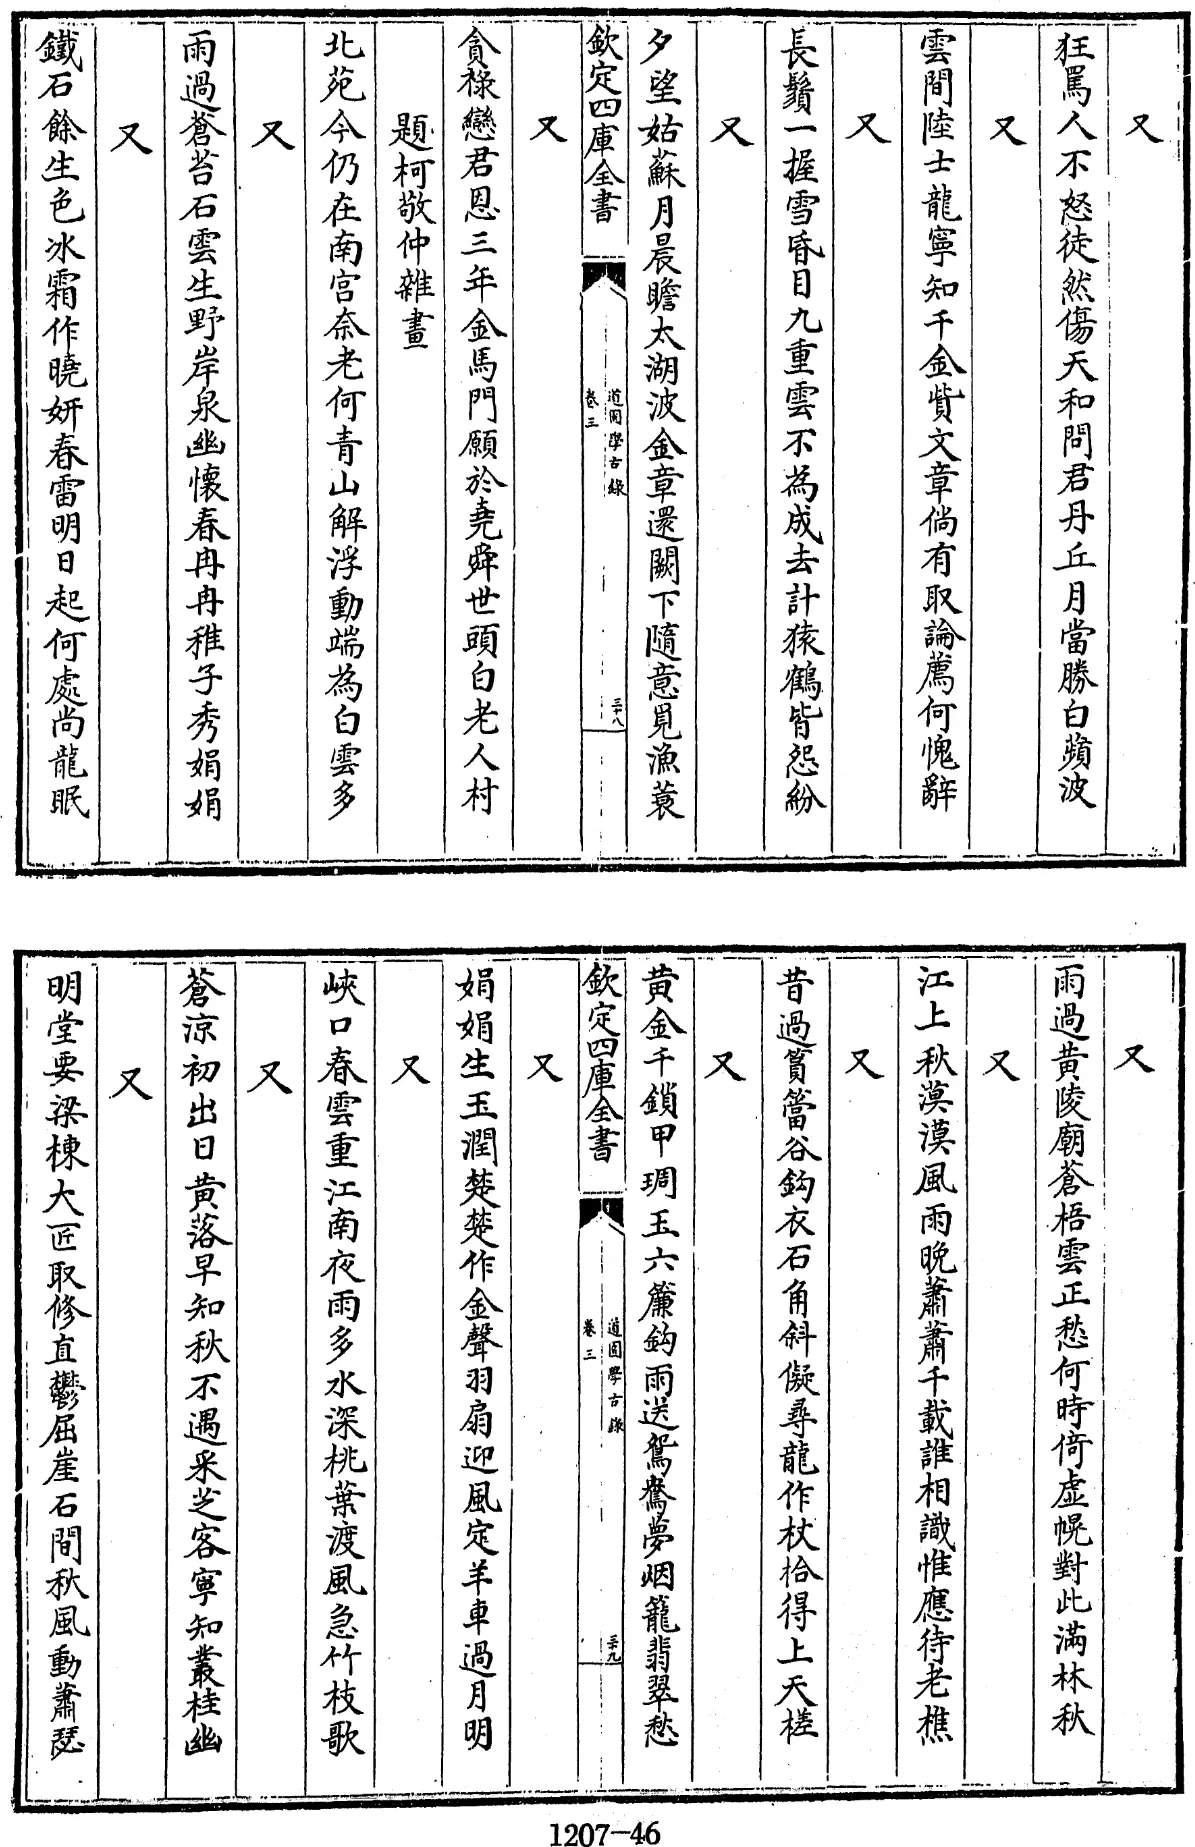 又
狂罵人不怒徒然傷天和問君丹丘月當勝白蘋波
又
雲間陸士龍寧知千金貲文章倘有取論薦何愧辭
又
長鬚一握雪昏目九重雲不為成去計猿鶴皆怨紛
又
夕望姑蘇月晨瞻太湖波金章還闕下隨意覓漁蓑
欽定四庫全書
道園學古錄
卷三
三十八
又
貪祿戀君恩三年金馬門願於堯舜世頭白老人村
題柯敬仲雜畫
北苑今仍在南宫奈老何青山解浮動端為白雲多
又
雨過蒼苔石雲生野岸泉幽懷春冉冉稚子秀娟娟
又
鐵石餘生色冰霜作曉妍春雷明日起何處尚龍眠
又
雨過黄陵廟蒼梧雲正愁何時倚虚幌對此滿林秋
又
江上秋漠漠風雨晚蕭蕭千載誰相識惟應待老樵
又
昔過篔簹谷鈎衣石角斜儗尋龍作杖拾得上天槎
又
黄金千鎖甲琱玉六簾鈎雨送鴛鴦夢烟籠翡翠愁
欽定四庫全書
道園學古錄
卷三
三十九
又
娟娟生玉潤楚楚作金聲羽扇迎風定羊車過月明
又
峽口春雲重江南夜雨多水深桃葉渡風急竹枝歌
又
蒼凉初出日黄落早知秋不遇采芝客寧知叢桂幽
又
明堂要梁棟大匠取修直鬱屈崖石間秋風動蕭瑟
1207-46